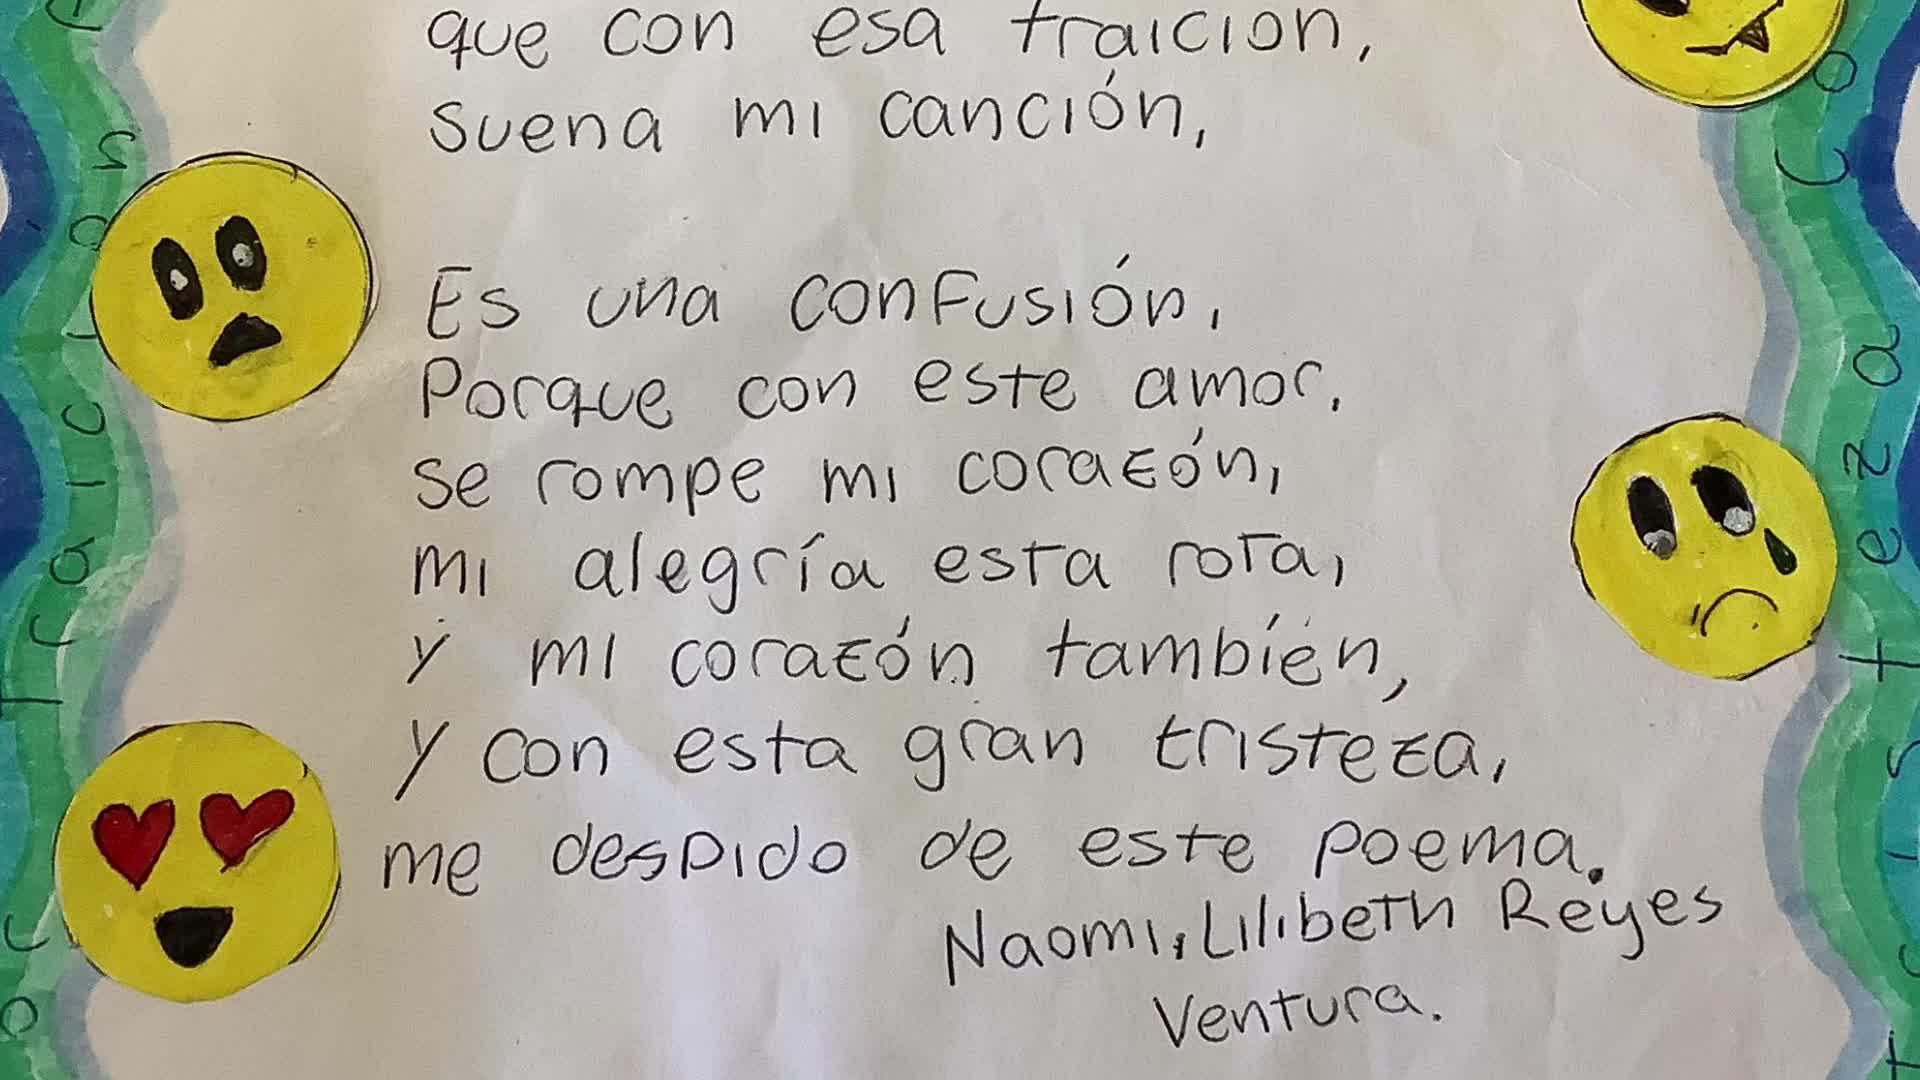 que con esa traicion,
suena mi canción,
Es una confusión,
Porque con este amor,
se rompe mi corazón,
mi alegría esta rota,
y mi corazón también,
y con esta gran tristeza,
me despido de este poema.
Naomi, Lilibeth Reyes
Ventura.
Traición
tristeza